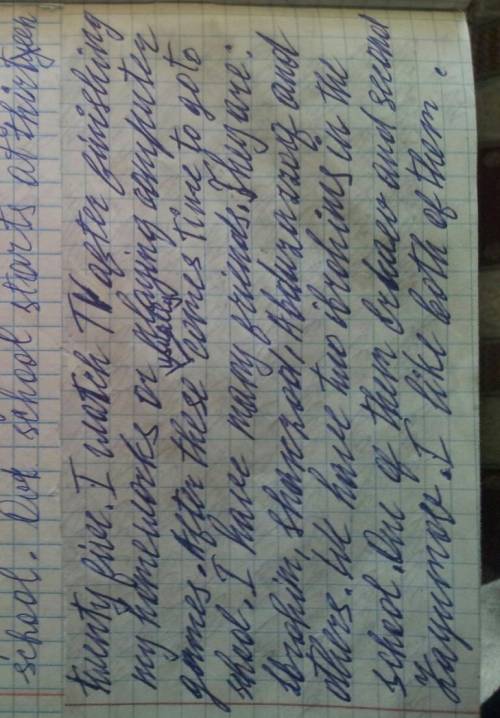 school. Our school starts at thirteen
twenty five. I watch TV after finishing
my homeworks or playing computer
games. After these usually comes time to go to
shool. I have many friends. They are:
Ibrohim, Shahzod, Abdurazzoq and
others. We have two ibrohims in the
school. One of them and second
I like both of them.